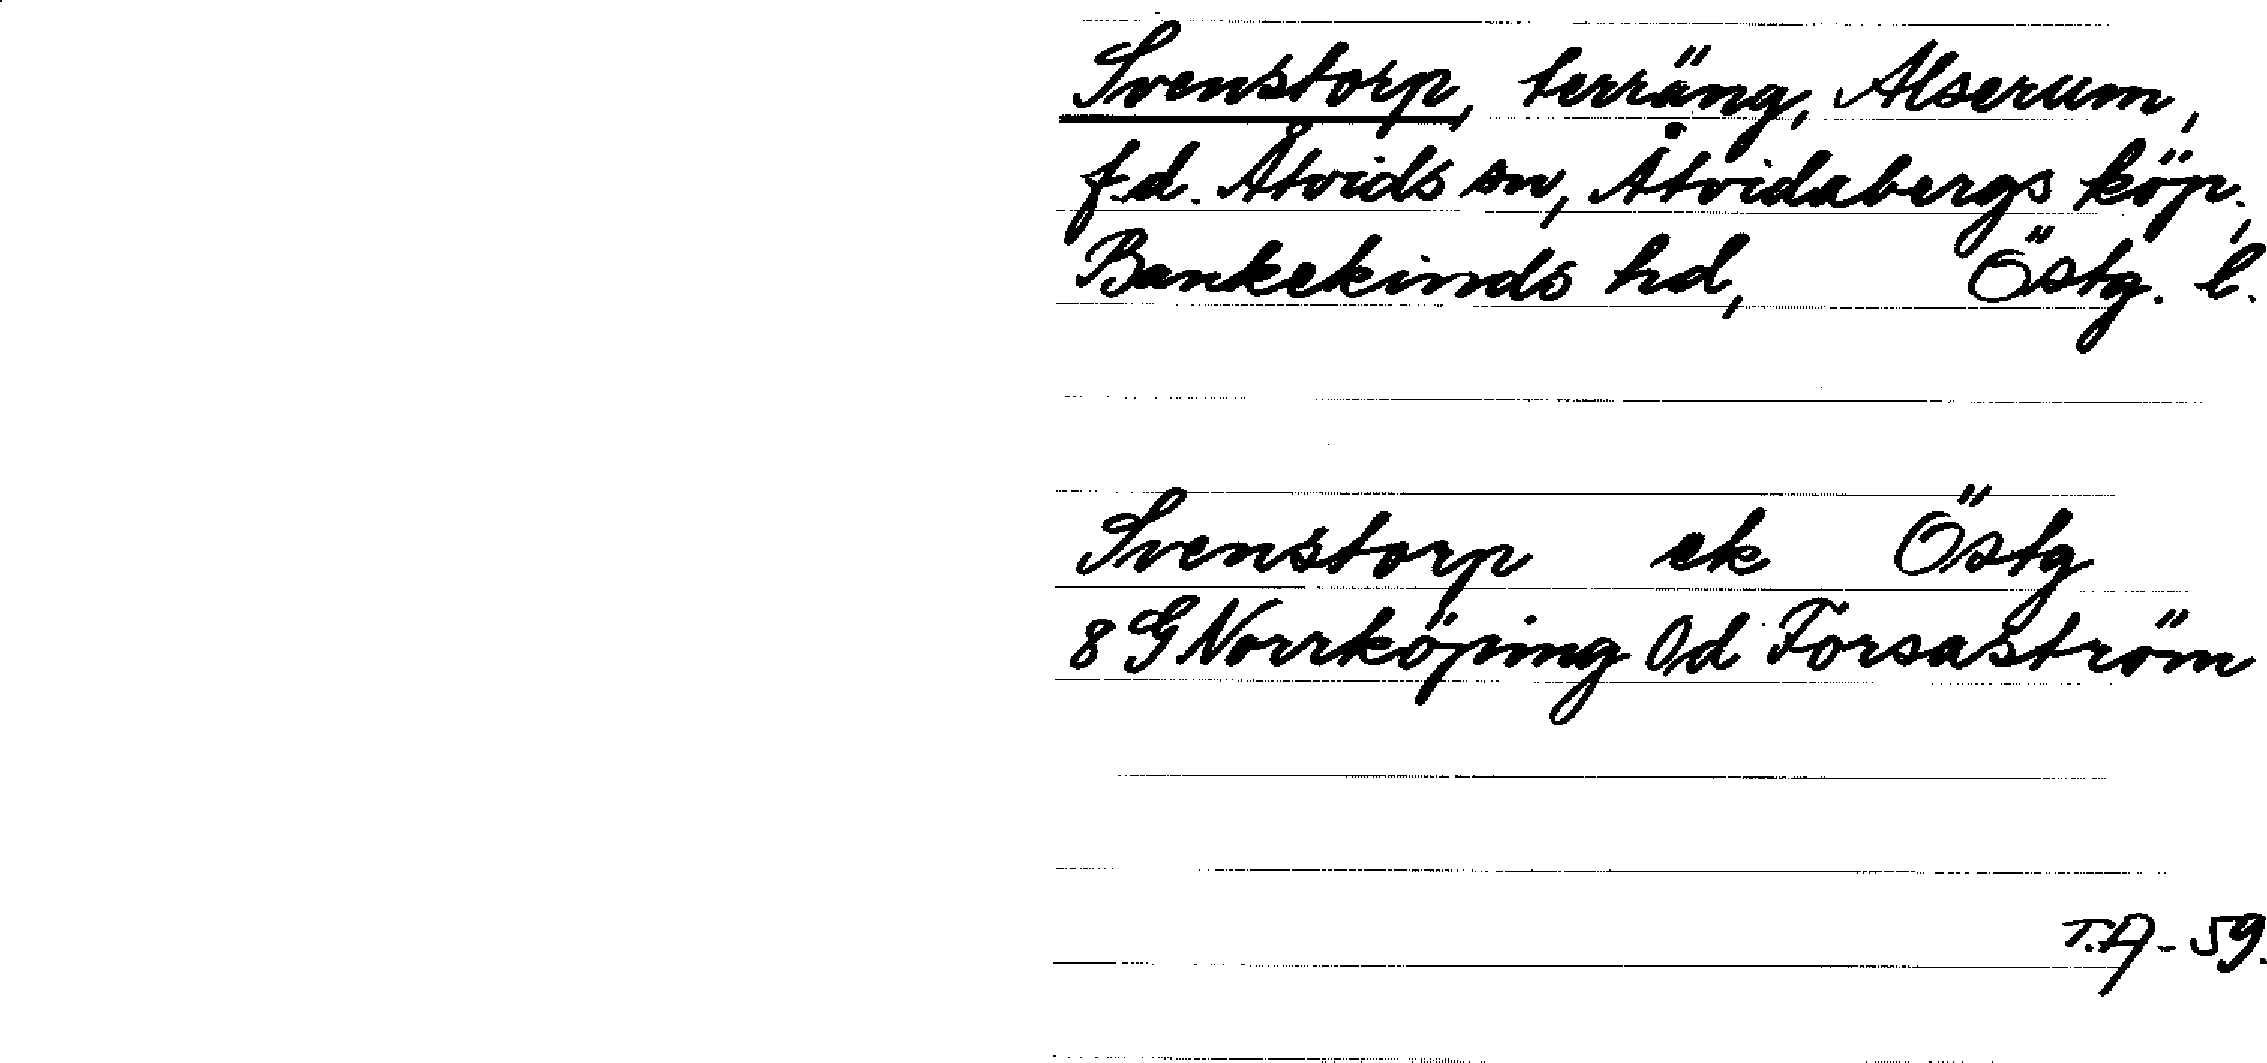 Svenstorp, terräng, Alserum,
f.d. Åtvids sn, Åtvidabergs köp.,
Bankekinds hd, Östg. l.
Svenstorp ek Östg
8 G Norrköping 0d Forsaström
T.A - 59.